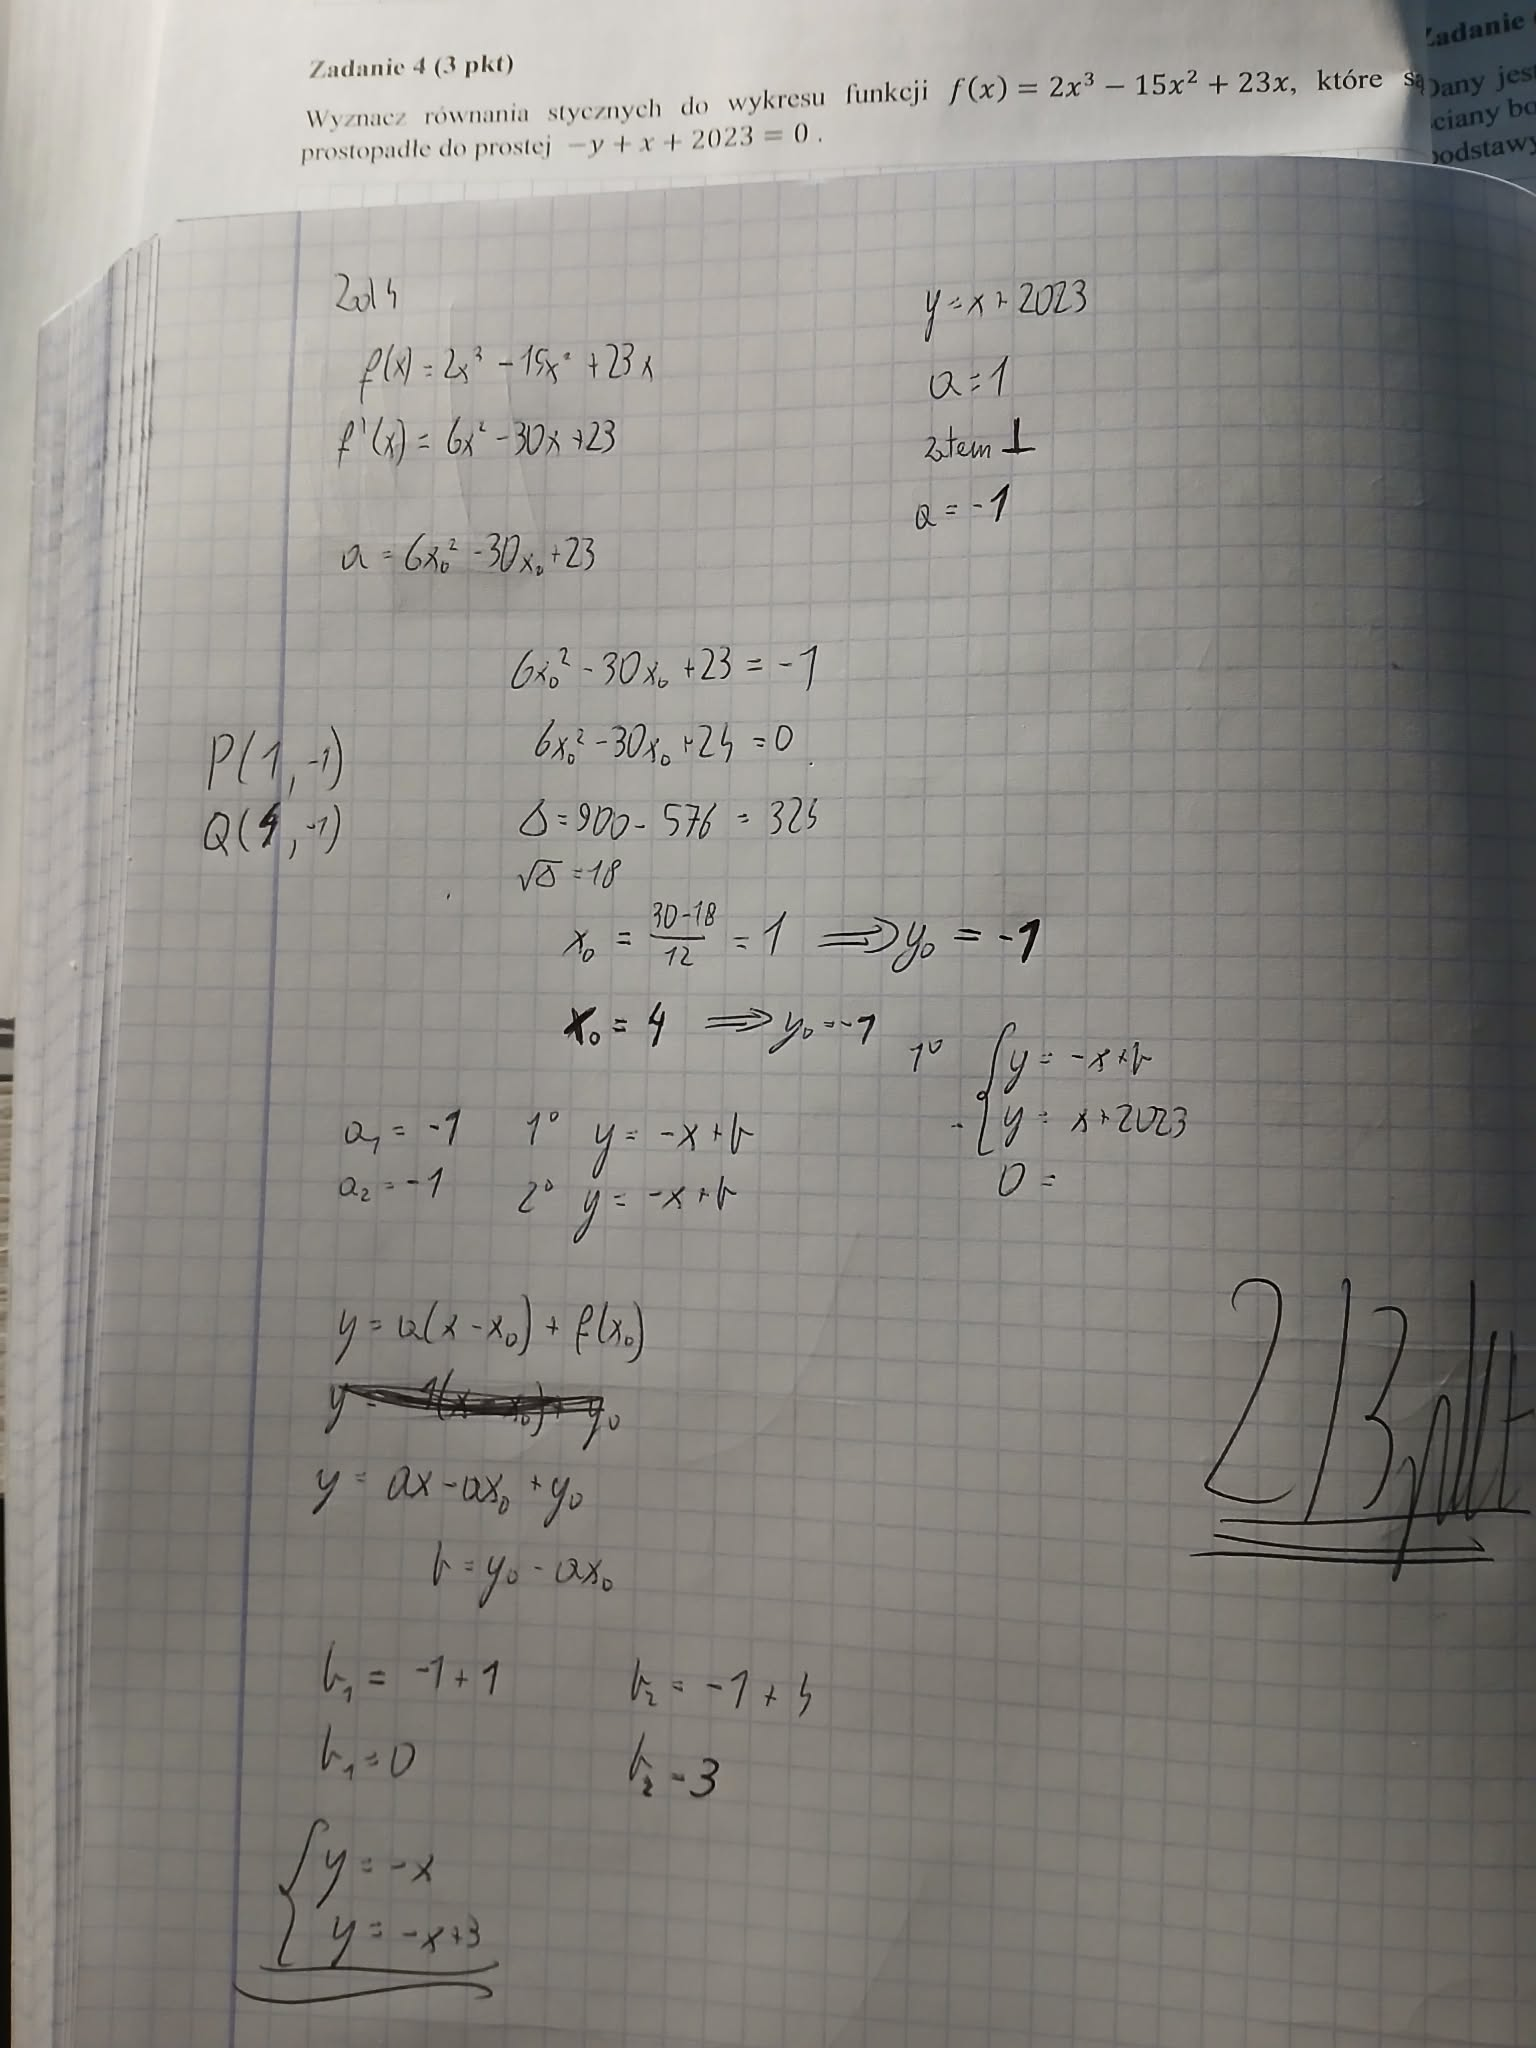 Zadanie 4 (3 pkt)
Wyznacz równania stycznych do wykresu funkcji f(x) = 2x³ − 15x² + 23x, które są
prostopadłe do prostej −y + x + 2023 = 0 .
Zadanie
Dany jest
ściany bo
podstawy
Zad 4
f(x) = 2x³ - 15x² + 23x
f'(x) = 6x² - 30x + 23
a = 6x₀² - 30x₀ + 23
y = x + 2023
a = 1
zatem ⊥
a = -1
6x₀² - 30x₀ + 23 = -1
6x₀² - 30x₀ + 24 = 0
P(1, -1)
Q(4, -1)
Δ = 900 - 576 = 324
√Δ = 18
x₀ = (30-18)/12 = 1 ⟹ y₀ = -1
x₀ = 4 ⟹ y₀ = -1
a₁ = -1 1° y = -x + b
a₂ = -1 2° y = -x + b
1° { y = -x + b
- { y = x + 2023
0 =
y = a(x - x₀) + f(x₀)
y = ax - ax₀ + y₀
b = y₀ - ax₀
b₁ = -1 + 1 b₂ = -1 + 4
b₁ = 0 b₂ = 3
{ y = -x
{ y = -x + 3
2/3 pkt